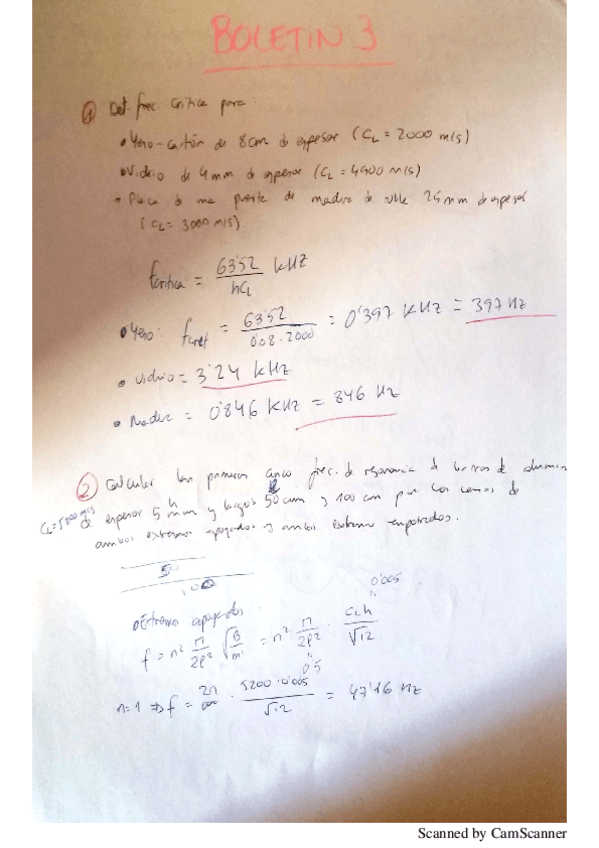 BOLETIN 3
① Det. frec crítica para:
• Yeso-cartón de 8cm de espesor (CL = 2000 m/s)
• Vidrio de 4mm de espesor (CL = 4900 m/s)
• Placa de una puerta de madera de roble 25mm de espesor
(CL = 3000 m/s)
fcritica = 63'52 / hCL KHz
• Yeso: fcrit = 63'52 / 0'08·2000 = 0'397 KHz = 397 Hz
• Vidrio = 3'24 KHz
• Madera = 0'846 KHz = 846 Hz
② Calcular las primeras cinco frec. de resonancia de barras de aluminio
CL=5200 m/s de espesor 5mm h y largos 50cm y 100 cm para los casos de
ambos extremos apoyados y ambos extremos empotrados.
50
100
• Extremos apoyados
0'005
f = n² π/2l² √B/m' = n² π/2l² · CLh/√12
0'5
n=1 ⇒ f = · 5200·0'005 / √12 = 47'16 Hz
Scanned by CamScanner